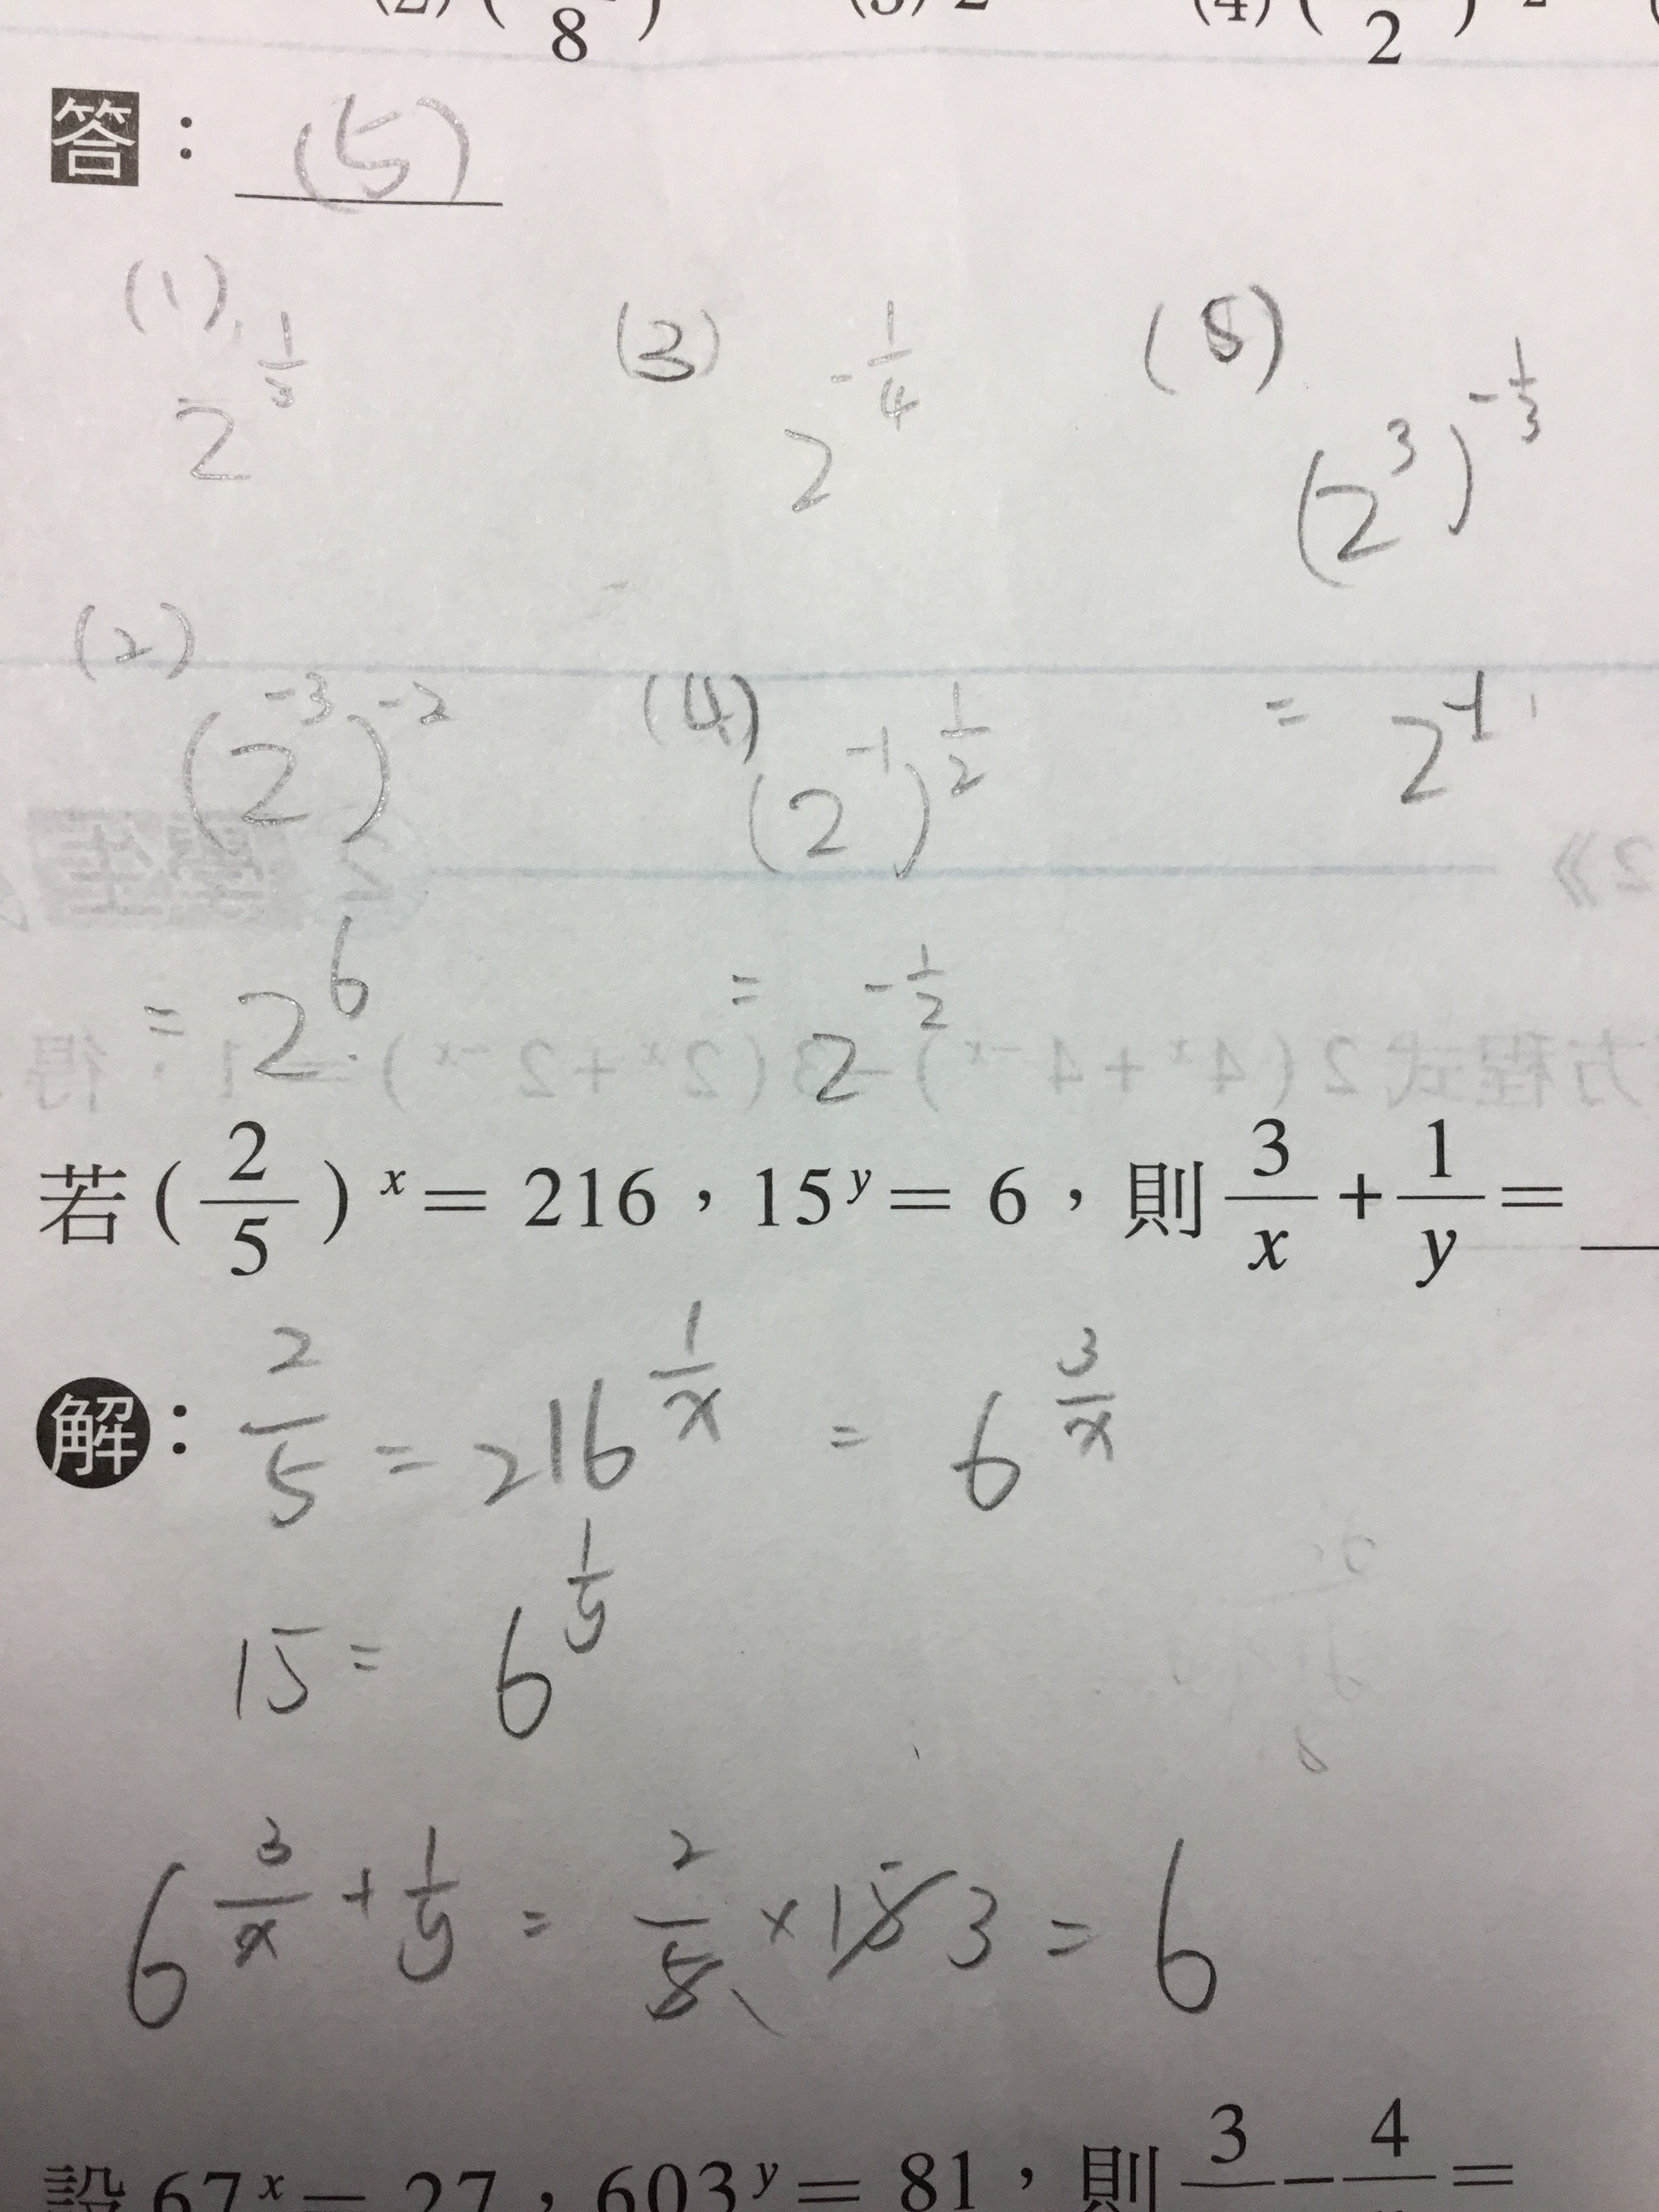 (2) ( 8 ) (3) 2 (4) ( 2 )
答：(5)
(1) 2^{1/3} (3) 2^{-1/4} (5) (2^3)^{-1/3}
(2) (2^{-3})^{-2} (4) (2^{-1})^{1/2} = 2^{-1}
= 2^6 = 2^{-1/2}
若 (2/5)^x = 216，15^y = 6，則 3/x + 1/y =
解：2/5 = 216^{1/x} = 6^{3/x}
15 = 6^{1/y}
6^{3/x + 1/y} = 2/5 × 15 3 = 6
設 67^x = 27，603^y = 81，則 3 − 4 =